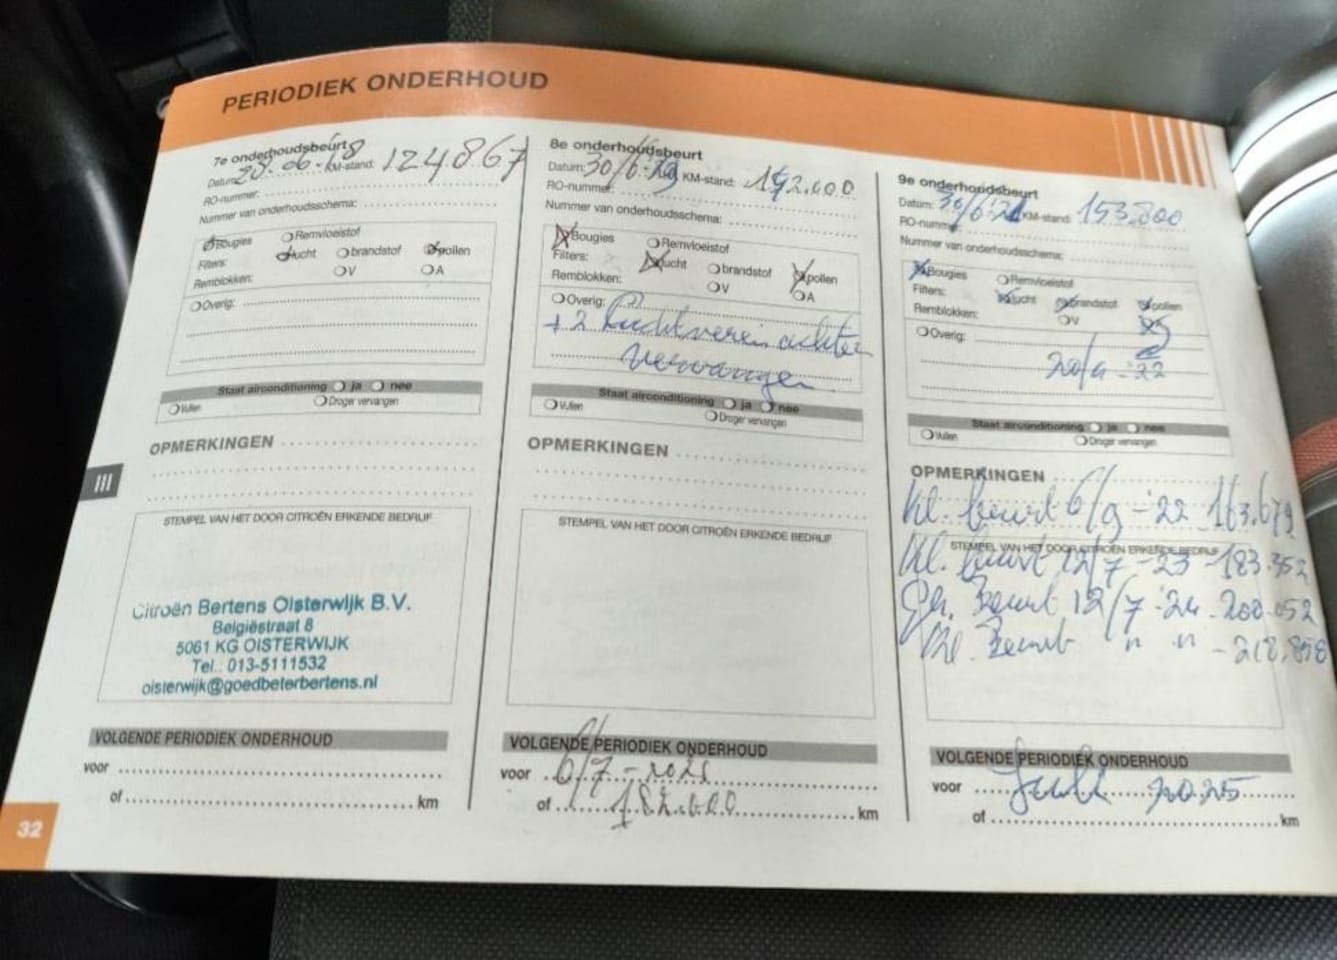 PERIODIEK ONDERHOUD
7e onderhoudsbeurt
Datum: 28.06-18 KM-stand: 124.867
RO-nummer:
Nummer van onderhoudsschema:
Bougies Remvloeistof
Filters: lucht brandstof pollen
Remblokken: V A
Overig:
Staat airconditioning ja nee
Vullen Droger vervangen
OPMERKINGEN
STEMPEL VAN HET DOOR CITROËN ERKENDE BEDRIJF
Citroën Bertens Oisterwijk B.V.
Belgiëstraat 8
5061 KG OISTERWIJK
Tel.: 013-5111532
oisterwijk@goedbeterbertens.nl
VOLGENDE PERIODIEK ONDERHOUD
voor
of km
8e onderhoudsbeurt
Datum: 30/6- KM-stand:
RO-nummer:
Nummer van onderhoudsschema:
Bougies Remvloeistof
Filters: lucht brandstof pollen
Remblokken: V A
Overig:
+ 2 achter
vervangen
Staat airconditioning ja nee
Vullen Droger vervangen
OPMERKINGEN
STEMPEL VAN HET DOOR CITROËN ERKENDE BEDRIJF
VOLGENDE PERIODIEK ONDERHOUD
voor 6/7-2021
of km
9e onderhoudsbeurt
Datum: 30/6'21 KM-stand: 153.800
RO-nummer:
Nummer van onderhoudsschema:
Bougies Remvloeistof
Filters: lucht brandstof pollen
Remblokken: V
Overig:
Staat airconditioning ja nee
Vullen Droger vervangen
OPMERKINGEN
Kl. beurt 6/9-'22 163.679
STEMPEL VAN HET DOOR CITROËN ERKENDE BEDRIJF
Kl. beurt 12/7-23-183.352
Gr. Beurt 12/7-'24-200.052
Kl. Beurt " " -218.858
VOLGENDE PERIODIEK ONDERHOUD
voor Juli 2025
of km
III
32